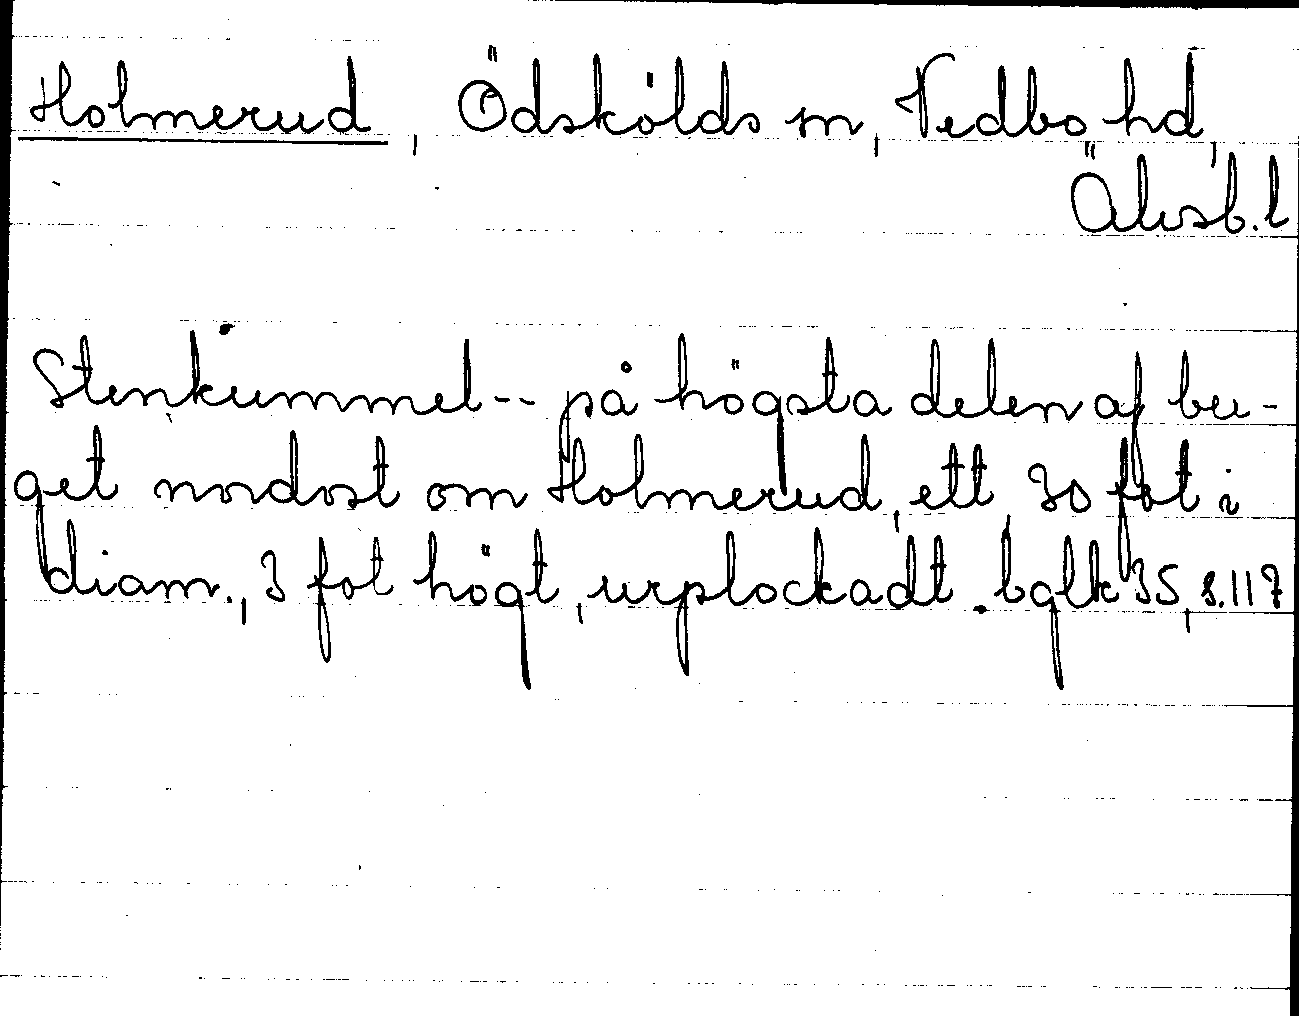 Holmerud, Ödskölds sn, Vedbo hd,
Älvsb.l
Stenkummel -- på högsta delen af ber-
get nordost om Holmerud, ett 30 fot i
diam., 3 fot högt, urplockadt. bglk 35, s.117